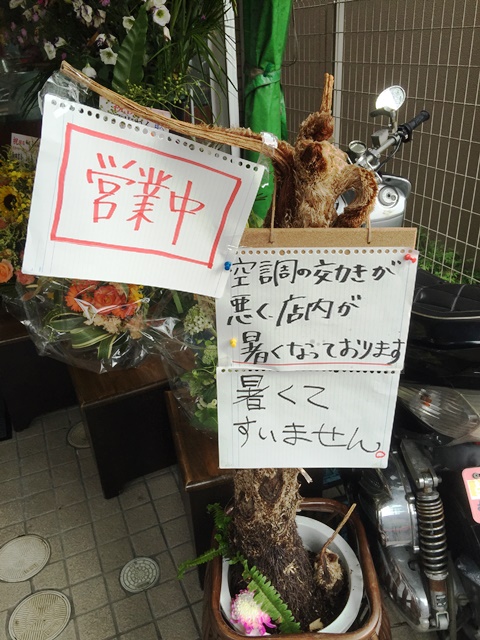 営業中
空調の効きが
悪く店内が
暑くなっております
暑くて
すいません。